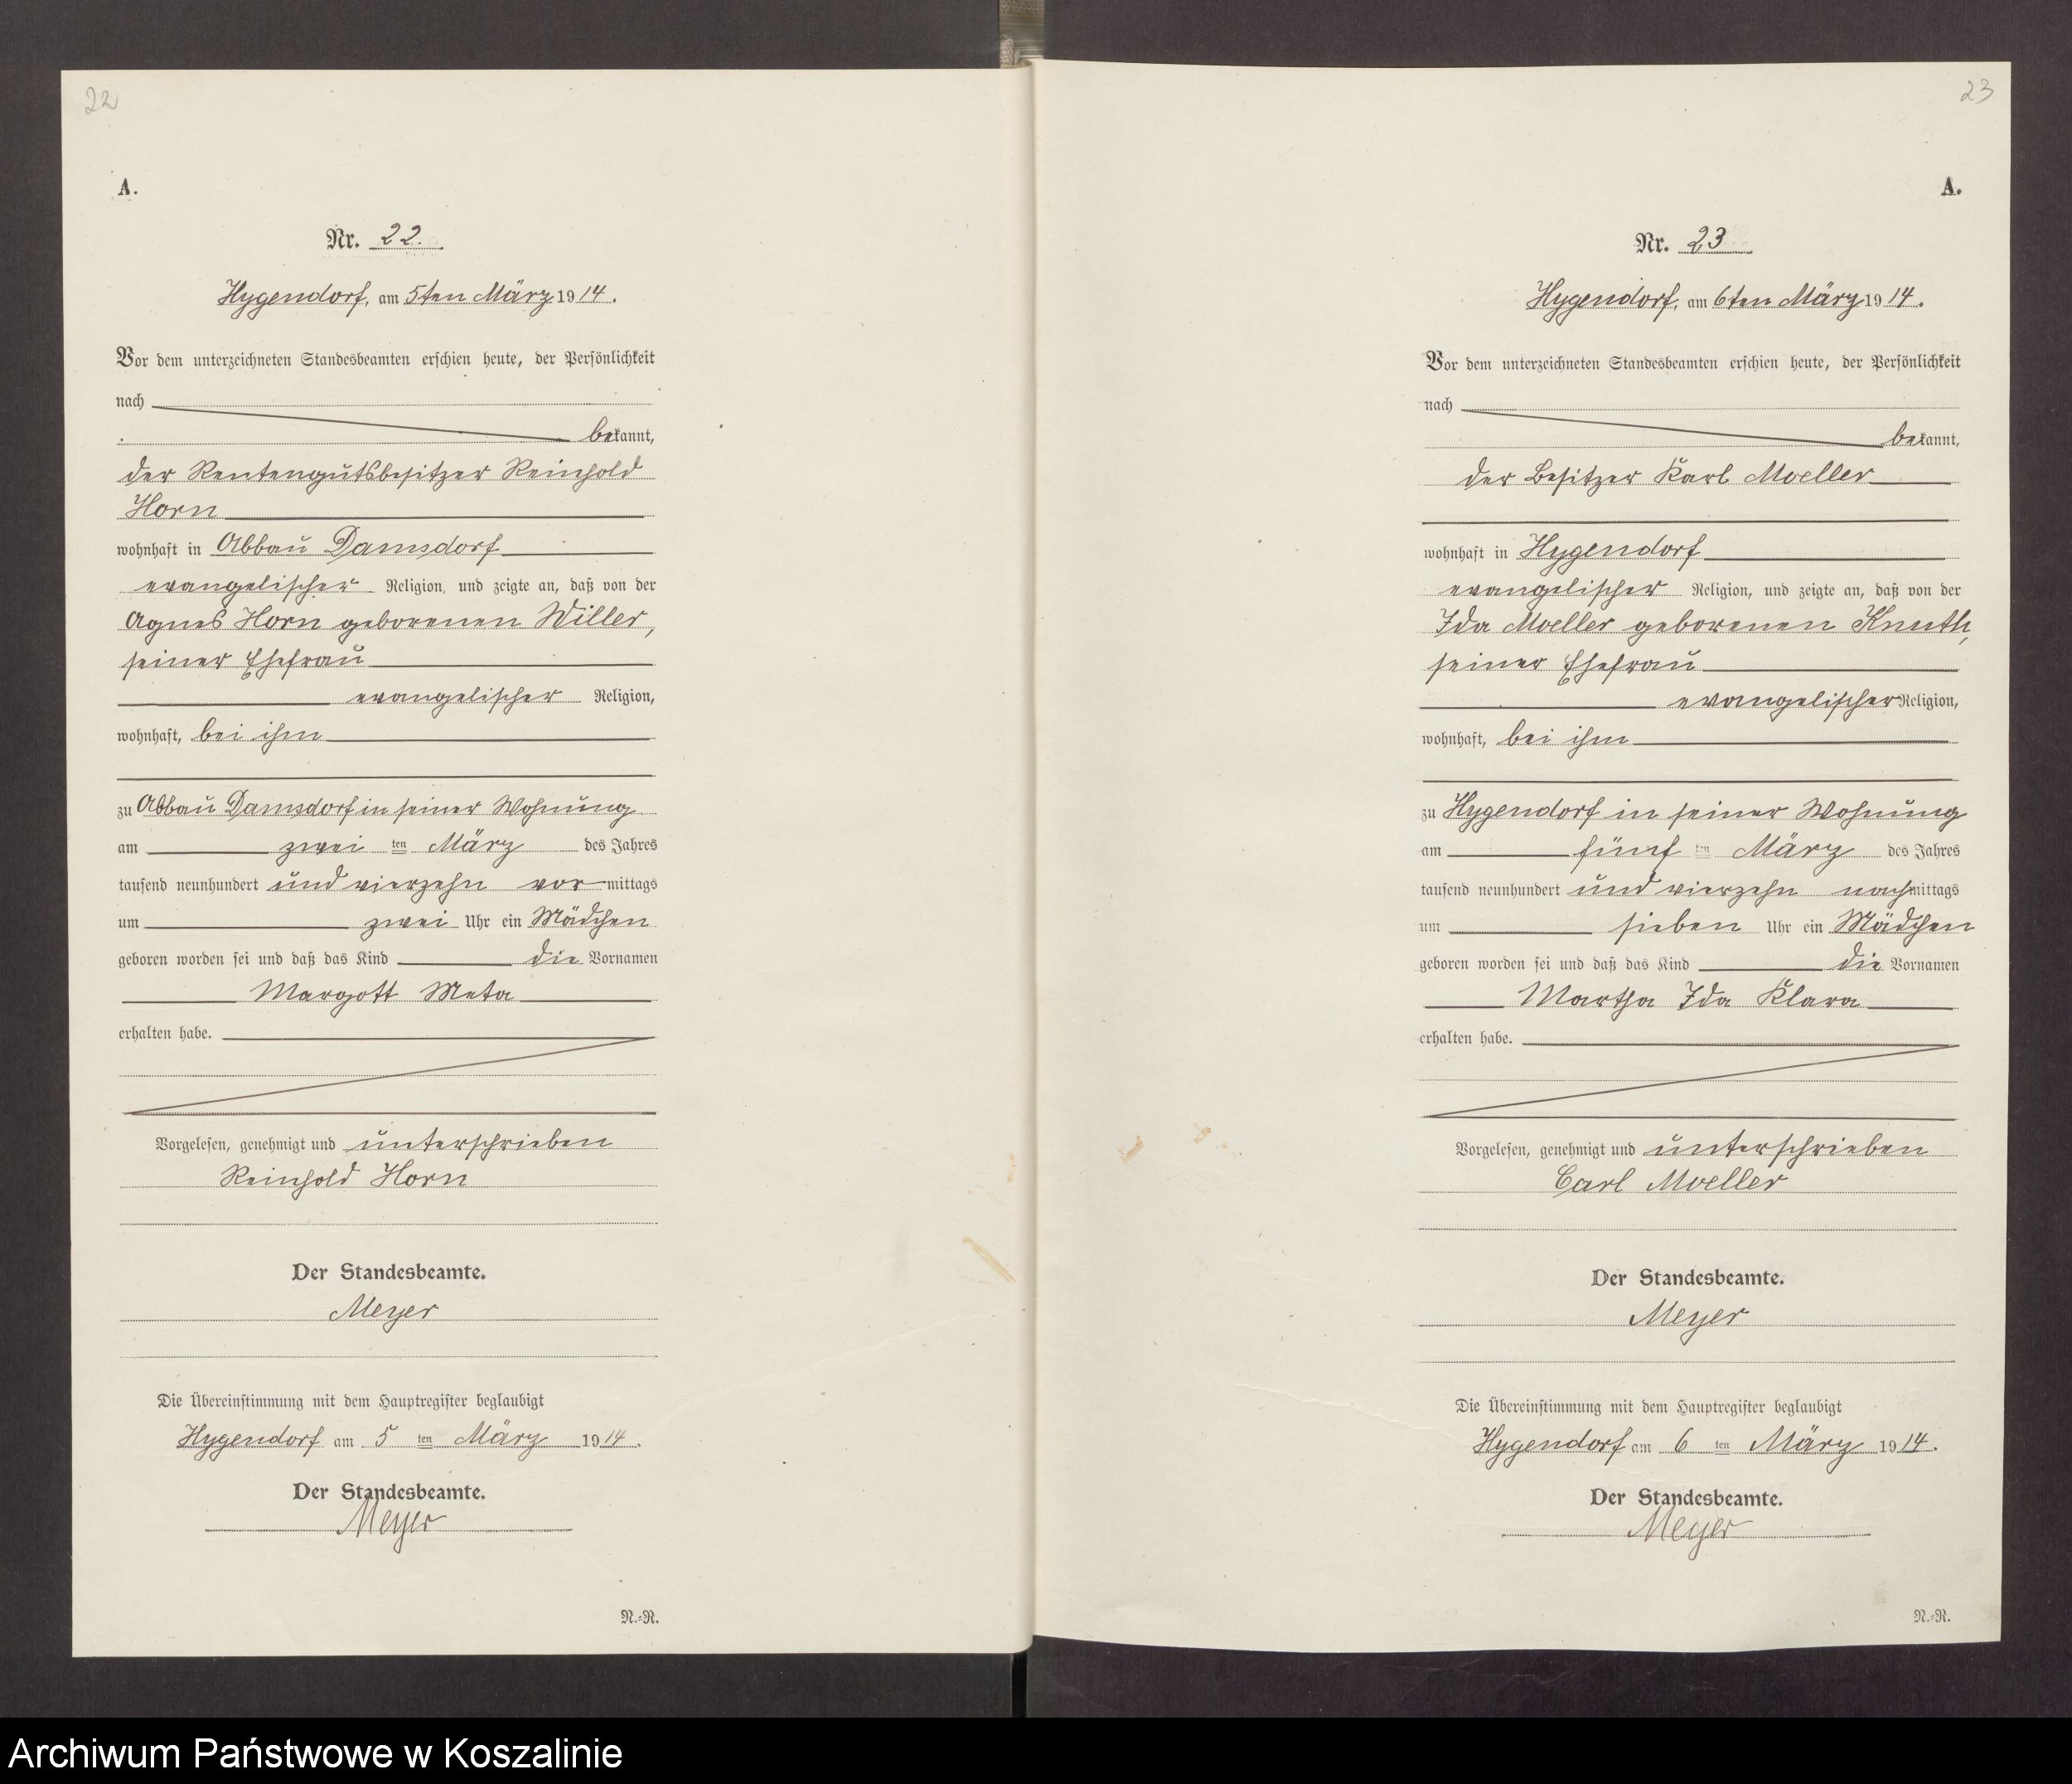 22
A.
Nr. 22.
Hygendorf, am 5ten März 1914.
Vor dem unterzeichneten Standesbeamten erschien heute, der Persönlichkeit
nach
bekannt,
der Rentengutsbesitzer Reinhold
Horn
wohnhaft in Abbau Damsdorf
evangelischer Religion, und zeigte an, daß von der
Agnes Horn geborenen Willer,
seiner Ehefrau
evangelischer Religion,
wohnhaft, bei ihm
zu Abbau Damsdorf in seiner Wohnung
am zwei ten März des Jahres
tausend neunhundert und vierzehn vor mittags
um zwei Uhr ein Mädchen
geboren worden sei und daß das Kind die Vornamen
Margott Meta
erhalten habe.
Vorgelesen, genehmigt und unterschrieben
Reinhold Horn
Der Standesbeamte.
Meyer
Die Übereinstimmung mit dem Hauptregister beglaubigt
Hygendorf am 5 ten März 1914.
Der Standesbeamte.
Meyer
N.-R.
23
A.
Nr. 23
Hygendorf, am 6ten März 1914.
Vor dem unterzeichneten Standesbeamten erschien heute, der Persönlichkeit
nach
bekannt,
der Besitzer Karl Moeller
wohnhaft in Hygendorf
evangelischer Religion, und zeigte an, daß von der
Ida Moeller geborenen Knuth,
seiner Ehefrau
evangelischer Religion,
wohnhaft, bei ihm
zu Hygendorf in seiner Wohnung
am fünf ten März des Jahres
tausend neunhundert und vierzehn nachmittags
um sieben Uhr ein Mädchen
geboren worden sei und daß das Kind die Vornamen
Martha Ida Klara
erhalten habe.
Vorgelesen, genehmigt und unterschrieben
Carl Moeller
Der Standesbeamte.
Meyer
Die Übereinstimmung mit dem Hauptregister beglaubigt
Hygendorf am 6 ten März 1914.
Der Standesbeamte.
Meyer
N.-R.
Archiwum Państwowe w Koszalinie